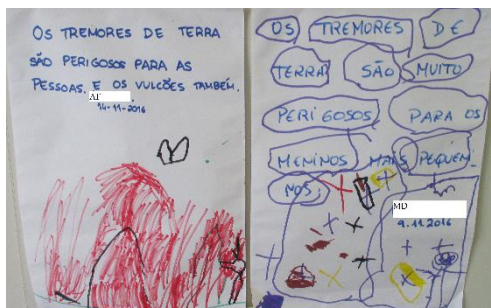 OS TREMORES DE TERRA
SÃO PERIGOSOS PARA AS
PESSOAS. E OS VULCÕES TAMBÉM.
AF
14-11-2016
OS TREMORES DE
TERRA SÃO MUITO
PERIGOSOS PARA OS
MENINOS MAIS PEQUENI
NOS.
MD
9.11.2016